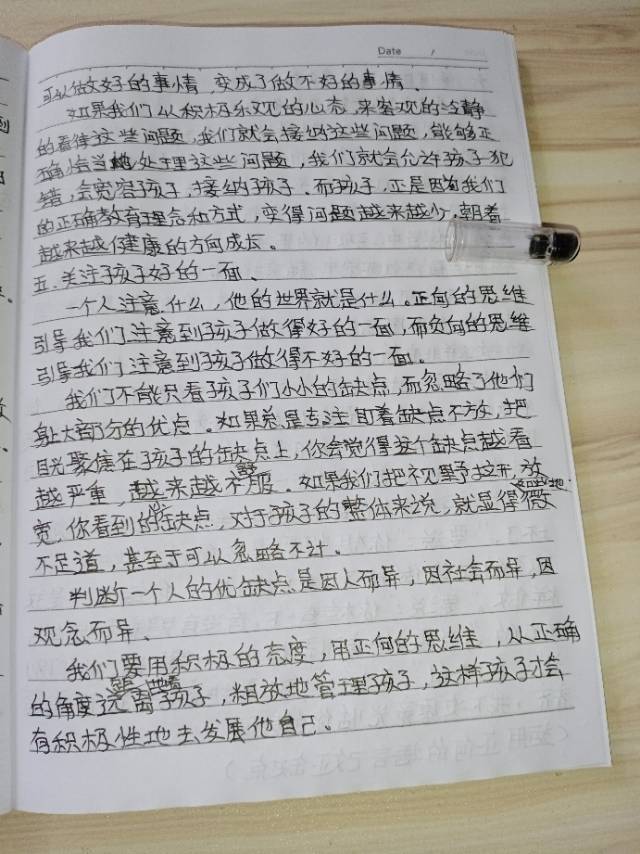 Date /
可以做好的事情,变成了做不好的事情。
如果我们从积极乐观的心态,来客观的冷静
的看待这些问题,我们就会接纳这些问题,能够正
确恰当地处理这些问题,我们就会允许孩子犯
错,会宽容孩子,接纳孩子。而孩子,正是因为我们
的正确教育理念和方式,变得问题越来越少,朝着
越来越健康的方向成长。
五.关注孩子好的一面、
一个人注意什么,他的世界就是什么。正向的思维
引导我们注意到孩子做得好的一面,而负向的思维
引导我们注意到孩子做得不好的一面。
我们不能只看孩子们小小的缺点,而忽略了他们
身上大部分的优点。如果总是专注盯着缺点不放,把
目光聚焦在孩子的缺点上,你会觉得这个缺点越看
越严重,越来越不舒服。如果我们把视野拉开,放
宽,你看到的缺点,对于孩子的整体来说,就显得微
不足道,甚至于可以忽略不计。
判断一个人的优缺点是因人而异,因社会而异,因
观念而异、
我们要用积极的态度,用正向的思维,从正确
的角度远离孩子,粗放地管理孩子,这样孩子才会
有积极性地去发展他自己。